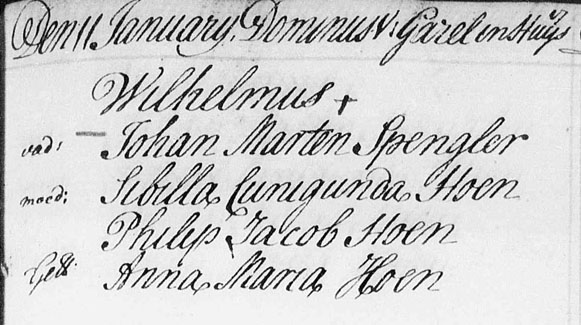 Den 11 January. Dominus V: Garel in Huijs
Wilhelmus +
vad: Johan Marten Spengler
moed: Sibilla Cunigunda Hoen
Philip Jacob Hoen
Gett: Anna Maria Hoen